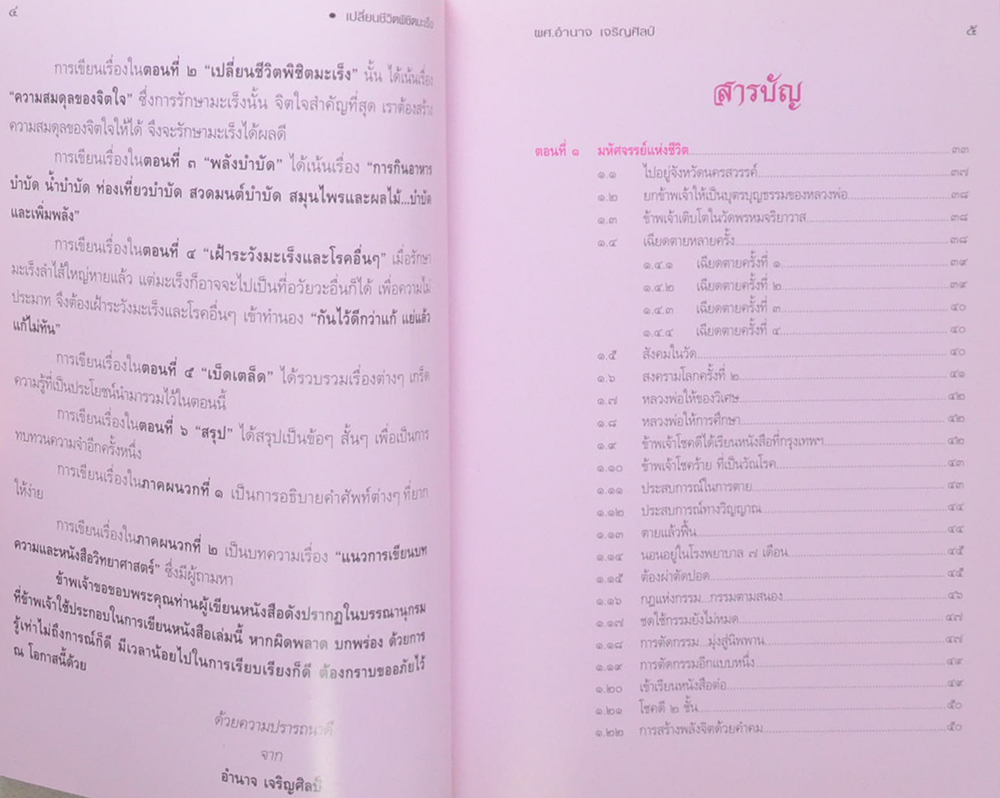 ๔
• เปลี่ยนชีวิตพิชิตมะเร็ง
การเขียนเรื่องในตอนที่ ๒ “เปลี่ยนชีวิตพิชิตมะเร็ง” นั้น ได้เน้นเรื่อง
“ความสมดุลของจิตใจ” ซึ่งการรักษามะเร็งนั้น จิตใจสำคัญที่สุด เราต้องสร้าง
ความสมดุลของจิตใจให้ได้ จึงจะรักษามะเร็งได้ผลดี
การเขียนเรื่องในตอนที่ ๓ “พลังบำบัด” ได้เน้นเรื่อง “การกินอาหาร
บำบัด น้ำบำบัด ท่องเที่ยวบำบัด สวดมนต์บำบัด สมุนไพรและผลไม้...บำบัด
และเพิ่มพลัง”
การเขียนเรื่องในตอนที่ ๔ “เฝ้าระวังมะเร็งและโรคอื่นๆ” เมื่อรักษา
มะเร็งลำไส้ใหญ่หายแล้ว แต่มะเร็งก็อาจจะไปเป็นที่อวัยวะอื่นก็ได้ เพื่อความไม่
ประมาท จึงต้องเฝ้าระวังมะเร็งและโรคอื่นๆ เข้าทำนอง “กันไว้ดีกว่าแก้ แย่แล้ว
แก้ไม่ทัน”
การเขียนเรื่องในตอนที่ ๕ “เบ็ดเตล็ด” ได้รวบรวมเรื่องต่างๆ เกร็ด
ความรู้ที่เป็นประโยชน์นำมารวมไว้ในตอนนี้
การเขียนเรื่องในตอนที่ ๖ “สรุป” ได้สรุปเป็นข้อๆ สั้นๆ เพื่อเป็นการ
ทบทวนความจำอีกครั้งหนึ่ง
การเขียนเรื่องในภาคผนวกที่ ๑ เป็นการอธิบายคำศัพท์ต่างๆ ที่ยาก
ให้ง่าย
การเขียนเรื่องในภาคผนวกที่ ๒ เป็นบทความเรื่อง “แนวการเขียนบท
ความและหนังสือวิทยาศาสตร์” ซึ่งมีผู้ถามหา
ข้าพเจ้าขอขอบพระคุณท่านผู้เขียนหนังสือดังปรากฏในบรรณานุกรม
ที่ข้าพเจ้าใช้ประกอบในการเขียนหนังสือเล่มนี้ หากผิดพลาด บกพร่อง ด้วยการ
รู้เท่าไม่ถึงการณ์ก็ดี มีเวลาน้อยไปในการเรียบเรียงก็ดี ต้องกราบขออภัยไว้
ณ โอกาสนี้ด้วย
ด้วยความปรารถนาดี
จาก
อำนาจ เจริญศิลป์
ผศ.อำนาจ เจริญศิลป์
๕
สารบัญ
ตอนที่ ๑ มหัศจรรย์แห่งชีวิต ๓๓
๑.๑ ไปอยู่จังหวัดนครสวรรค์ ๓๗
๑.๒ ยกข้าพเจ้าให้เป็นบุตรบุญธรรมของหลวงพ่อ ๓๘
๑.๓ ข้าพเจ้าเติบโตในวัดพรหมจริยาวาส ๓๘
๑.๔ เฉียดตายหลายครั้ง ๓๘
๑.๔.๑ เฉียดตายครั้งที่ ๑ ๓๙
๑.๔.๒ เฉียดตายครั้งที่ ๒ ๓๙
๑.๔.๓ เฉียดตายครั้งที่ ๓ ๔๐
๑.๔.๔ เฉียดตายครั้งที่ ๔ ๔๐
๑.๕ สังคมในวัด ๔๐
๑.๖ สงครามโลกครั้งที่ ๒ ๔๑
๑.๗ หลวงพ่อให้ของวิเศษ ๔๒
๑.๘ หลวงพ่อให้การศึกษา ๔๒
๑.๙ ข้าพเจ้าโชคดีได้เรียนหนังสือที่กรุงเทพฯ ๔๒
๑.๑๐ ข้าพเจ้าโชคร้าย ที่เป็นวัณโรค ๔๓
๑.๑๑ ประสบการณ์ในการตาย ๔๓
๑.๑๒ ประสบการณ์ทางวิญญาณ ๔๔
๑.๑๓ ตายแล้วฟื้น ๔๔
๑.๑๔ นอนอยู่ในโรงพยาบาล ๗ เดือน ๔๕
๑.๑๕ ต้องผ่าตัดปอด ๔๕
๑.๑๖ กฎแห่งกรรม...กรรมตามสนอง ๔๖
๑.๑๗ ชดใช้กรรมยังไม่หมด ๔๗
๑.๑๘ การตัดกรรม...มุ่งสู่นิพพาน ๔๗
๑.๑๙ การตัดกรรมอีกแบบหนึ่ง ๔๙
๑.๒๐ เข้าเรียนหนังสือต่อ ๔๙
๑.๒๑ โชคดี ๒ ชั้น ๕๐
๑.๒๒ การสร้างพลังจิตด้วยคำคม ๕๐